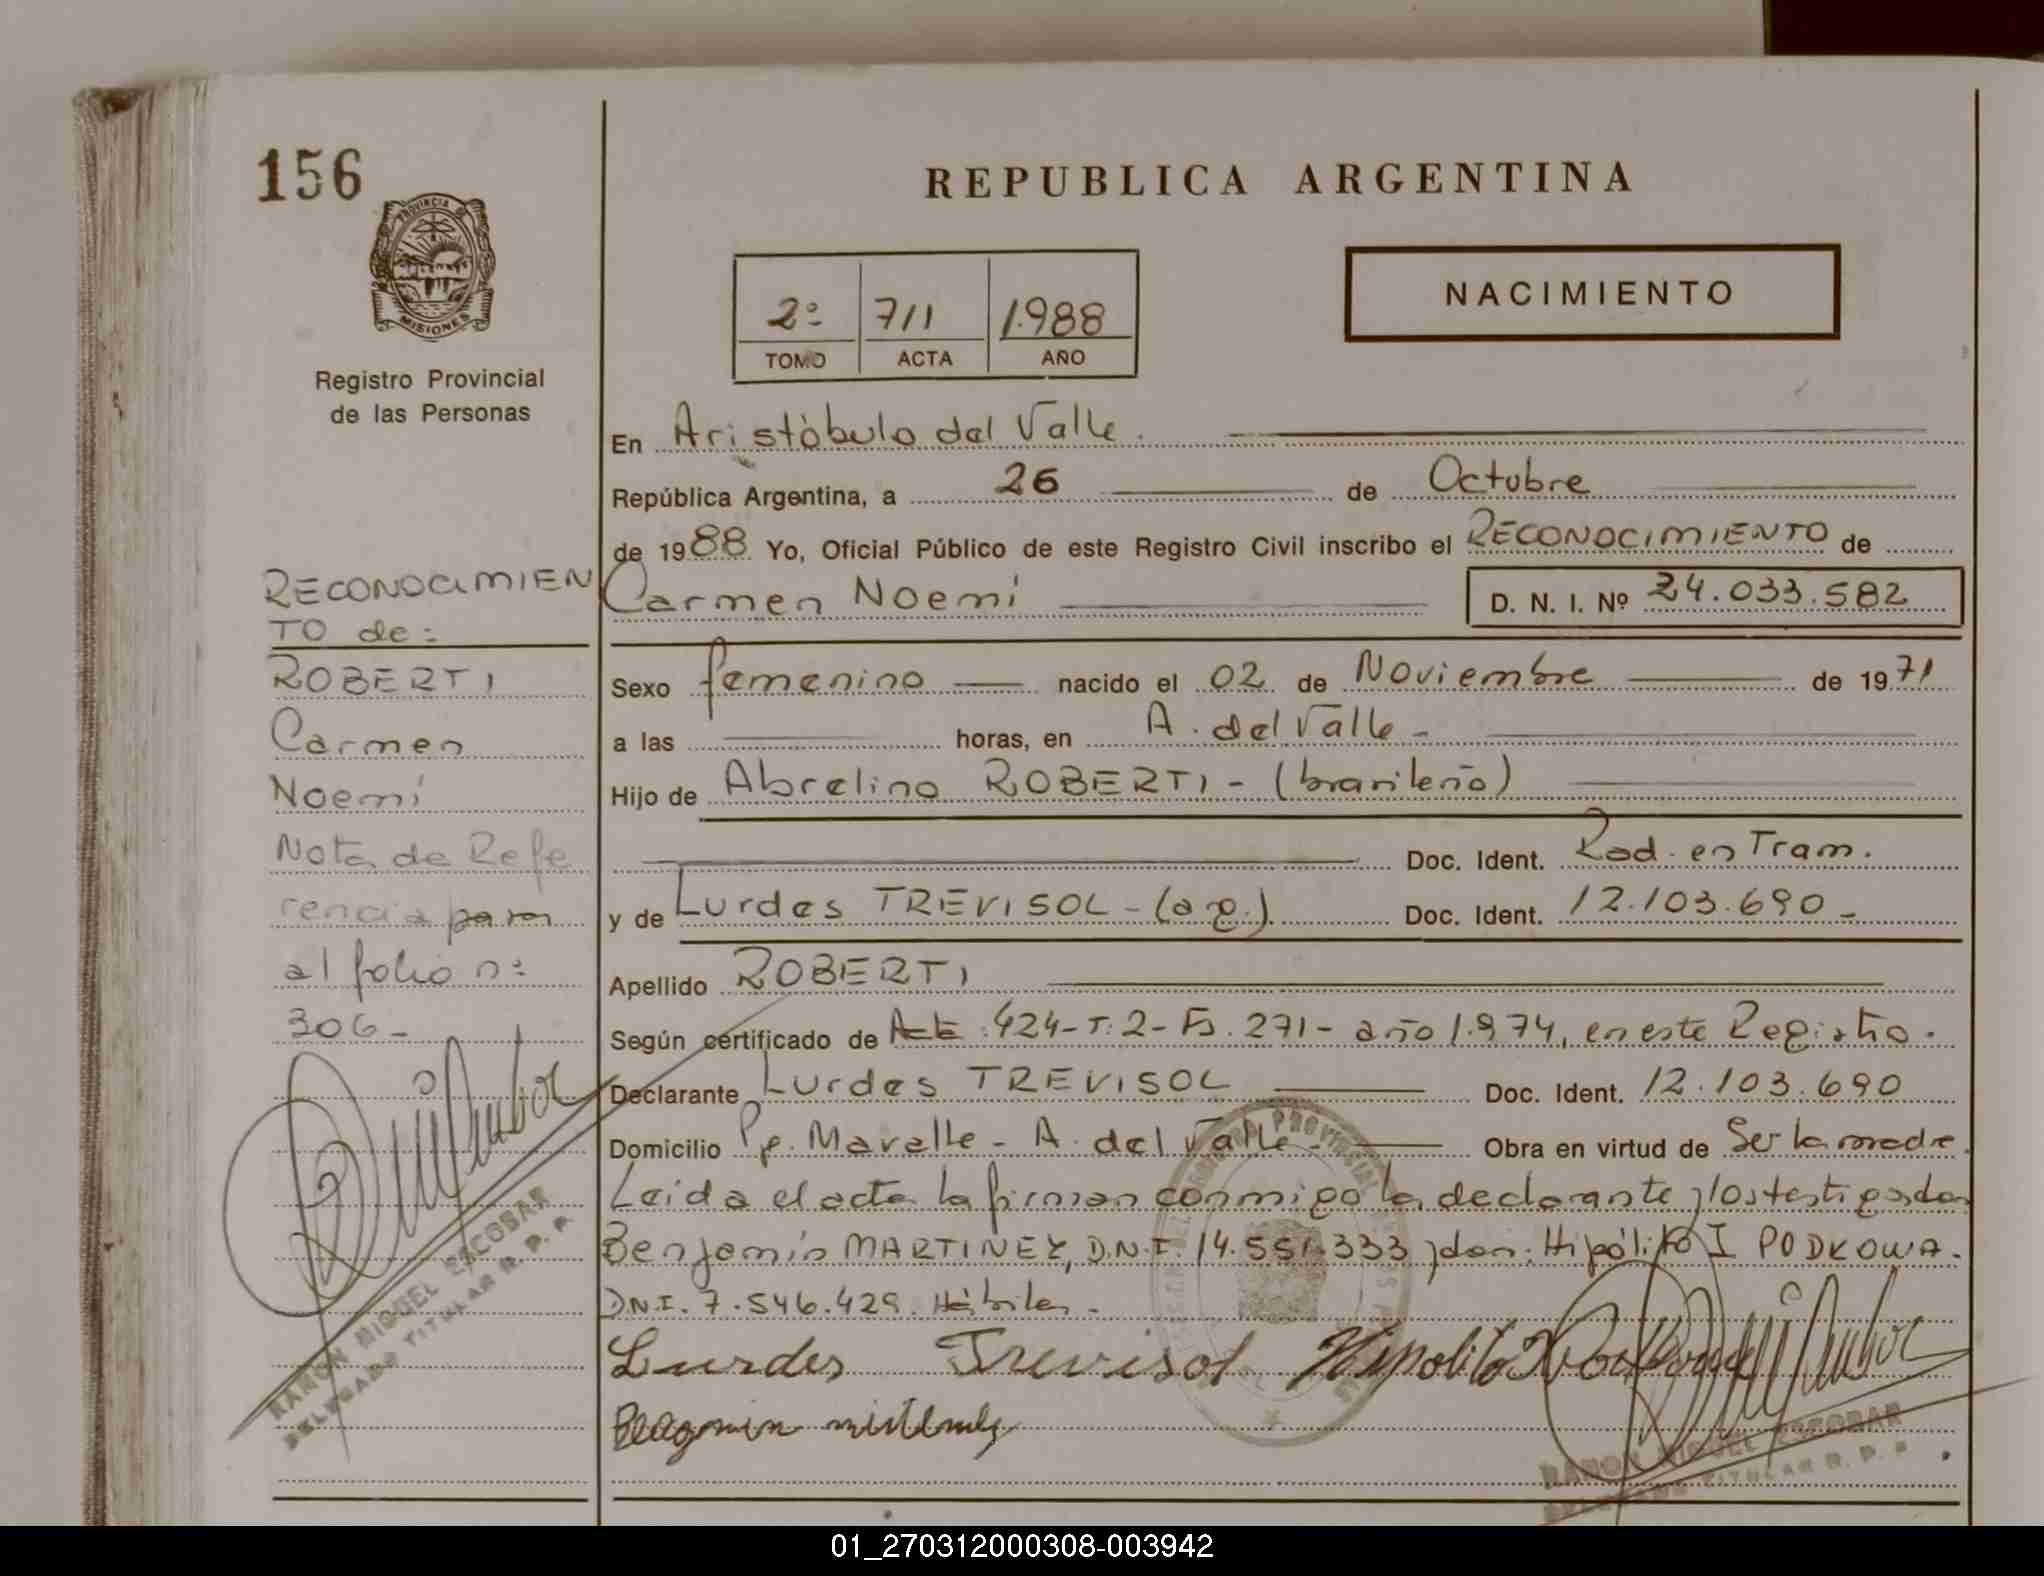 156
PROVINCIA DE
MISIONES
Registro Provincial
de las Personas
REPUBLICA ARGENTINA
2º 711 1.988
TOMO ACTA AÑO
NACIMIENTO
En Aristóbulo del Valle.
República Argentina, a 26 de Octubre
de 1988 Yo, Oficial Público de este Registro Civil inscribo el RECONOCIMIENTO de
Carmen Noemí D. N. I. Nº 24.033.582
Sexo femenino nacido el 02 de Noviembre de 1971
a las horas, en A. del Valle -
Hijo de Abrelino ROBERTI - (brasileño)
Doc. Ident. Rad. en Tram.
y de Lurdes TREVISOL - (arg.) Doc. Ident. 12.103.690 -
Apellido ROBERTI
Según certificado de Acta: 424 - T: 2 - Fº. 271 - año 1.974, en este Registro.
Declarante Lurdes TREVISOL Doc. Ident. 12.103.690
Domicilio Pje. Mavalle - A. del Valle - Obra en virtud de Ser la madre.
Leida el acta la firman conmigo la declarante y los testigos don
Benjamín MARTINEZ, D.N.I. 14.551.333 y don: Hipólito I PODKOWA.
D.N.I. 7.546.429. Hábiles -
Lurdes Trevisol Hipolito
RAMON MIGUEL ESCOBAR
DELEGADO TITULAR R. P. P.
RECONOCIMIEN
TO de:
ROBERTI
Carmen
Noemí
Nota de Refe
rencia para
al folio nº
306 -
RAMON MIGUEL ESCOBAR
DELEGADO TITULAR R. P. P.
01_270312000308-003942